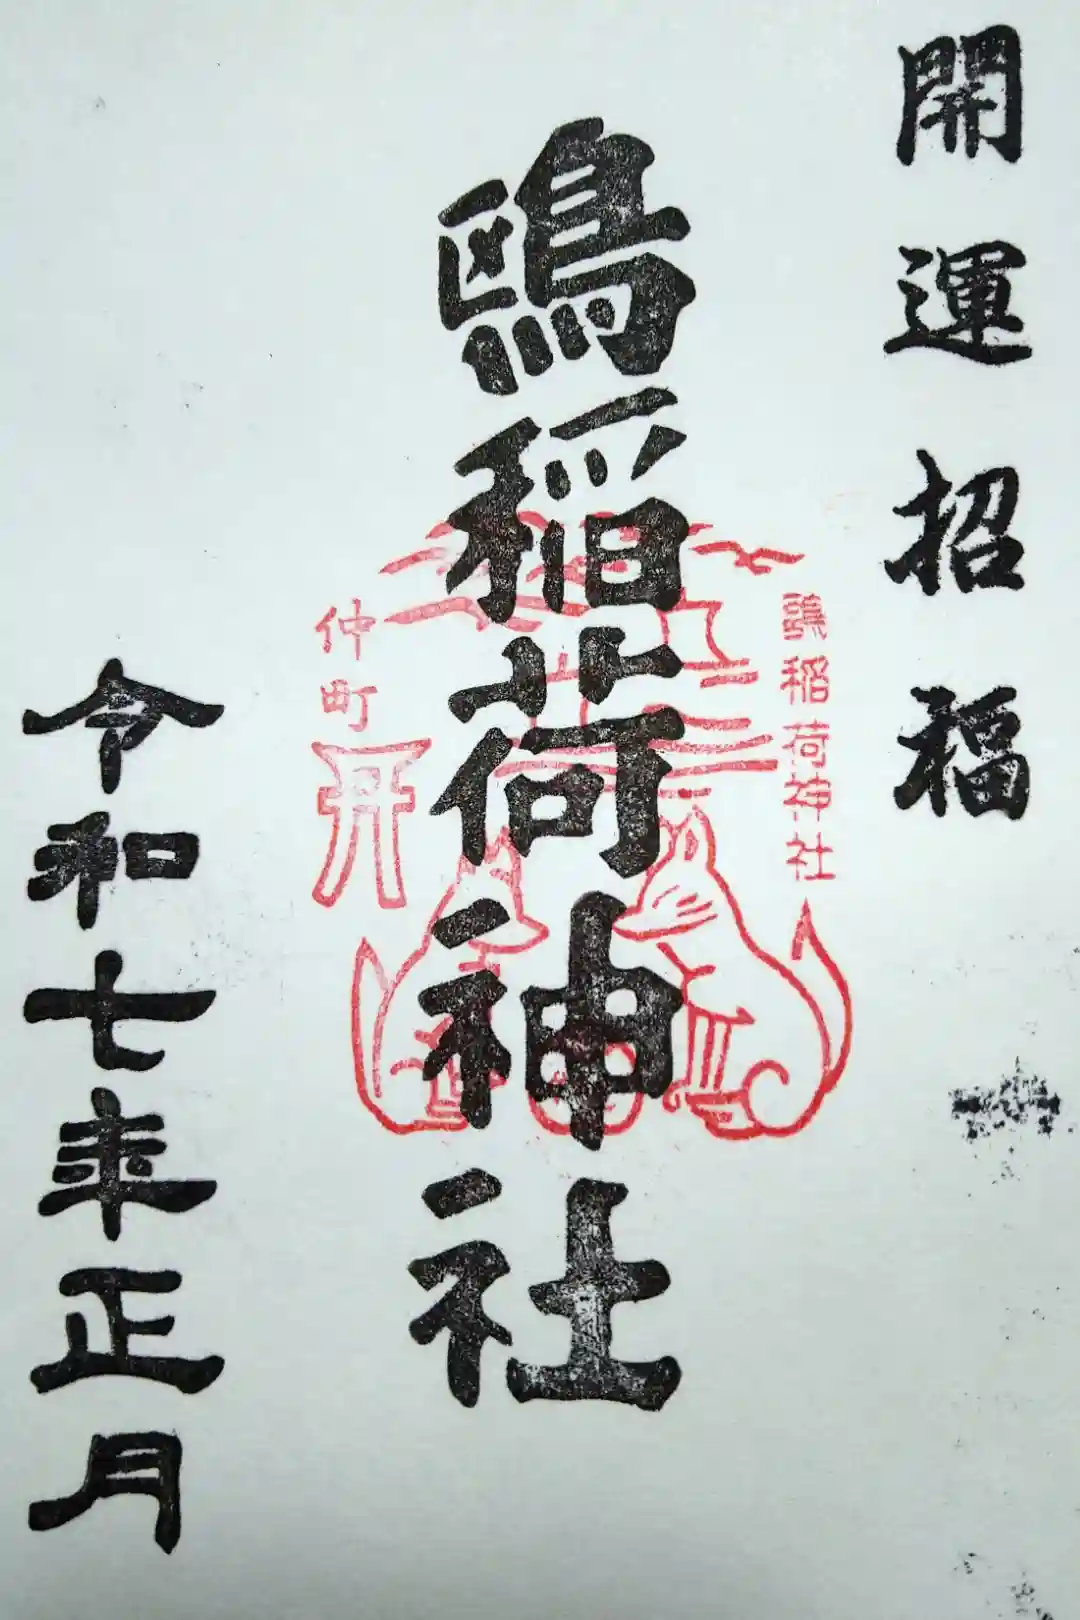 開運招福
鴎稲荷神社
稲荷神社
仲町
令和七年正月